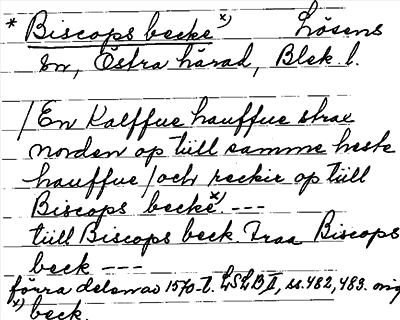 * Biscops becke x) Lösens
sn, Östra härad, Blek. l.
/En Kalffue hauffue strax
norden op tiill samme heste
hauffue/och reckir op tiill
Biscops becke x) ---
tiill Biscops beck. Fraa Biscops
beck ---
förra delen av 1570-t. LSLB II, ss. 482, 483. orig
x) beck.